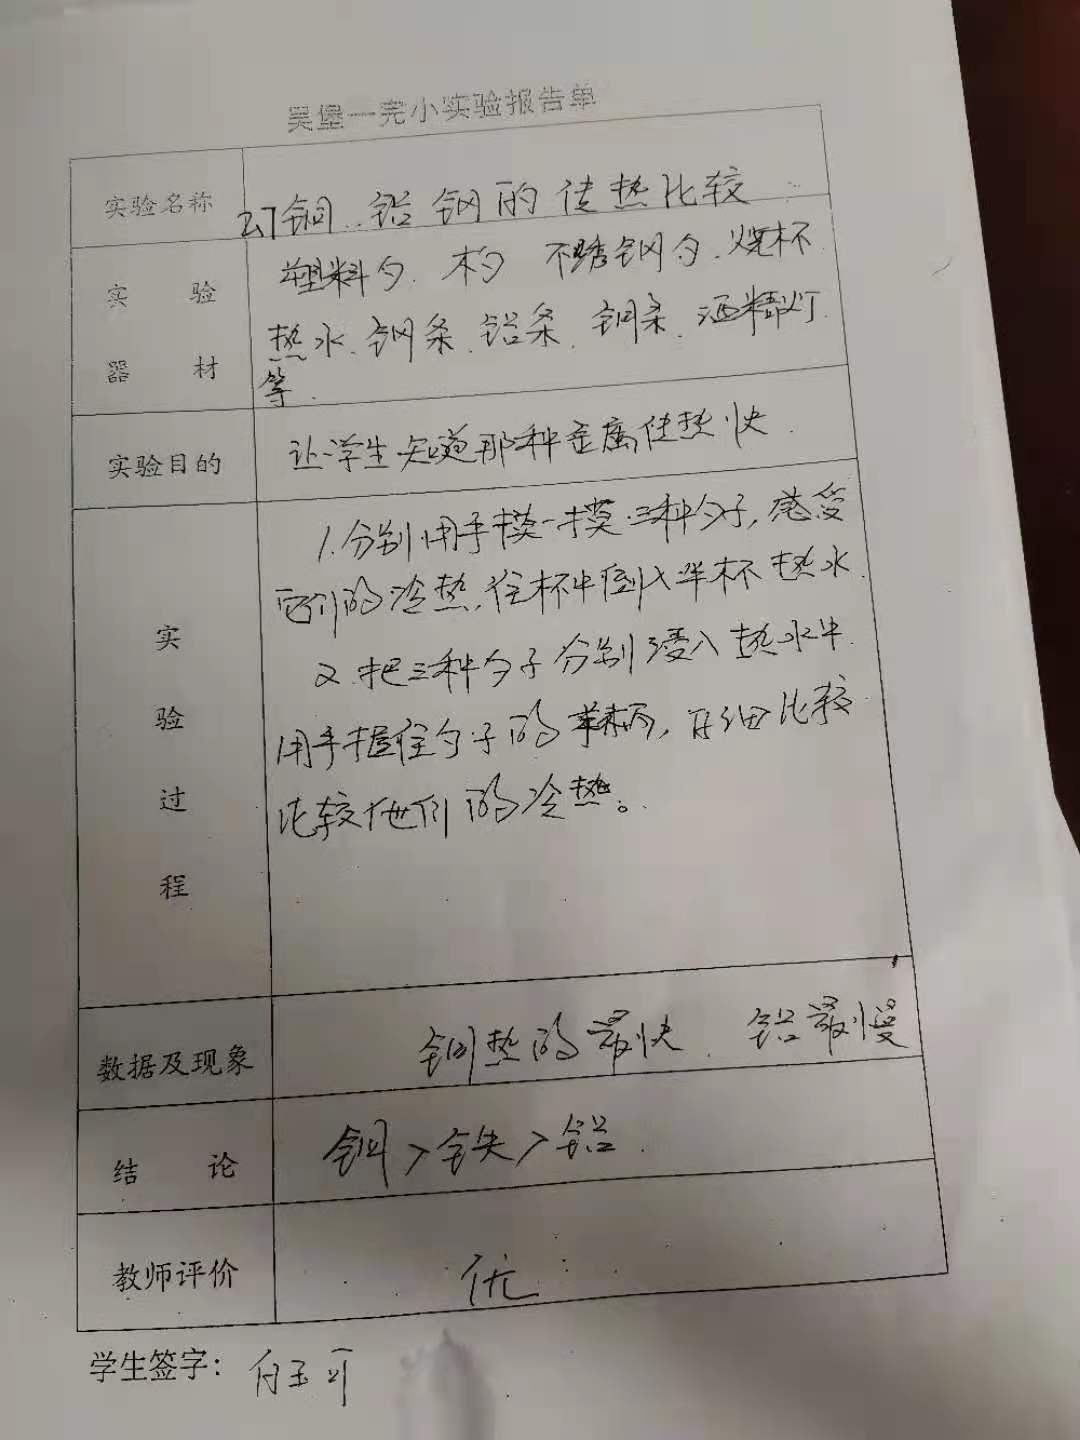 吴堡一完小实验报告单
实验名称
对铜、铝、钢的传热比较
实验
器材
塑料勺、木勺 不锈钢勺、烧杯
热水、钢条、铝条、铜条、酒精灯
等.
实验目的
让学生知道那种金属传热快.
实验过程
1.分别用手摸一摸三种勺子,感受
它们的冷热,往杯中倒入半杯热水.
2.把三种勺子分别浸入热水中.
用手握住勺子的柄,仔细比较
比较他们的冷热。
数据及现象
铜热的最快、铝最慢
结论
铜>铁>铝.
教师评价
优
学生签字: